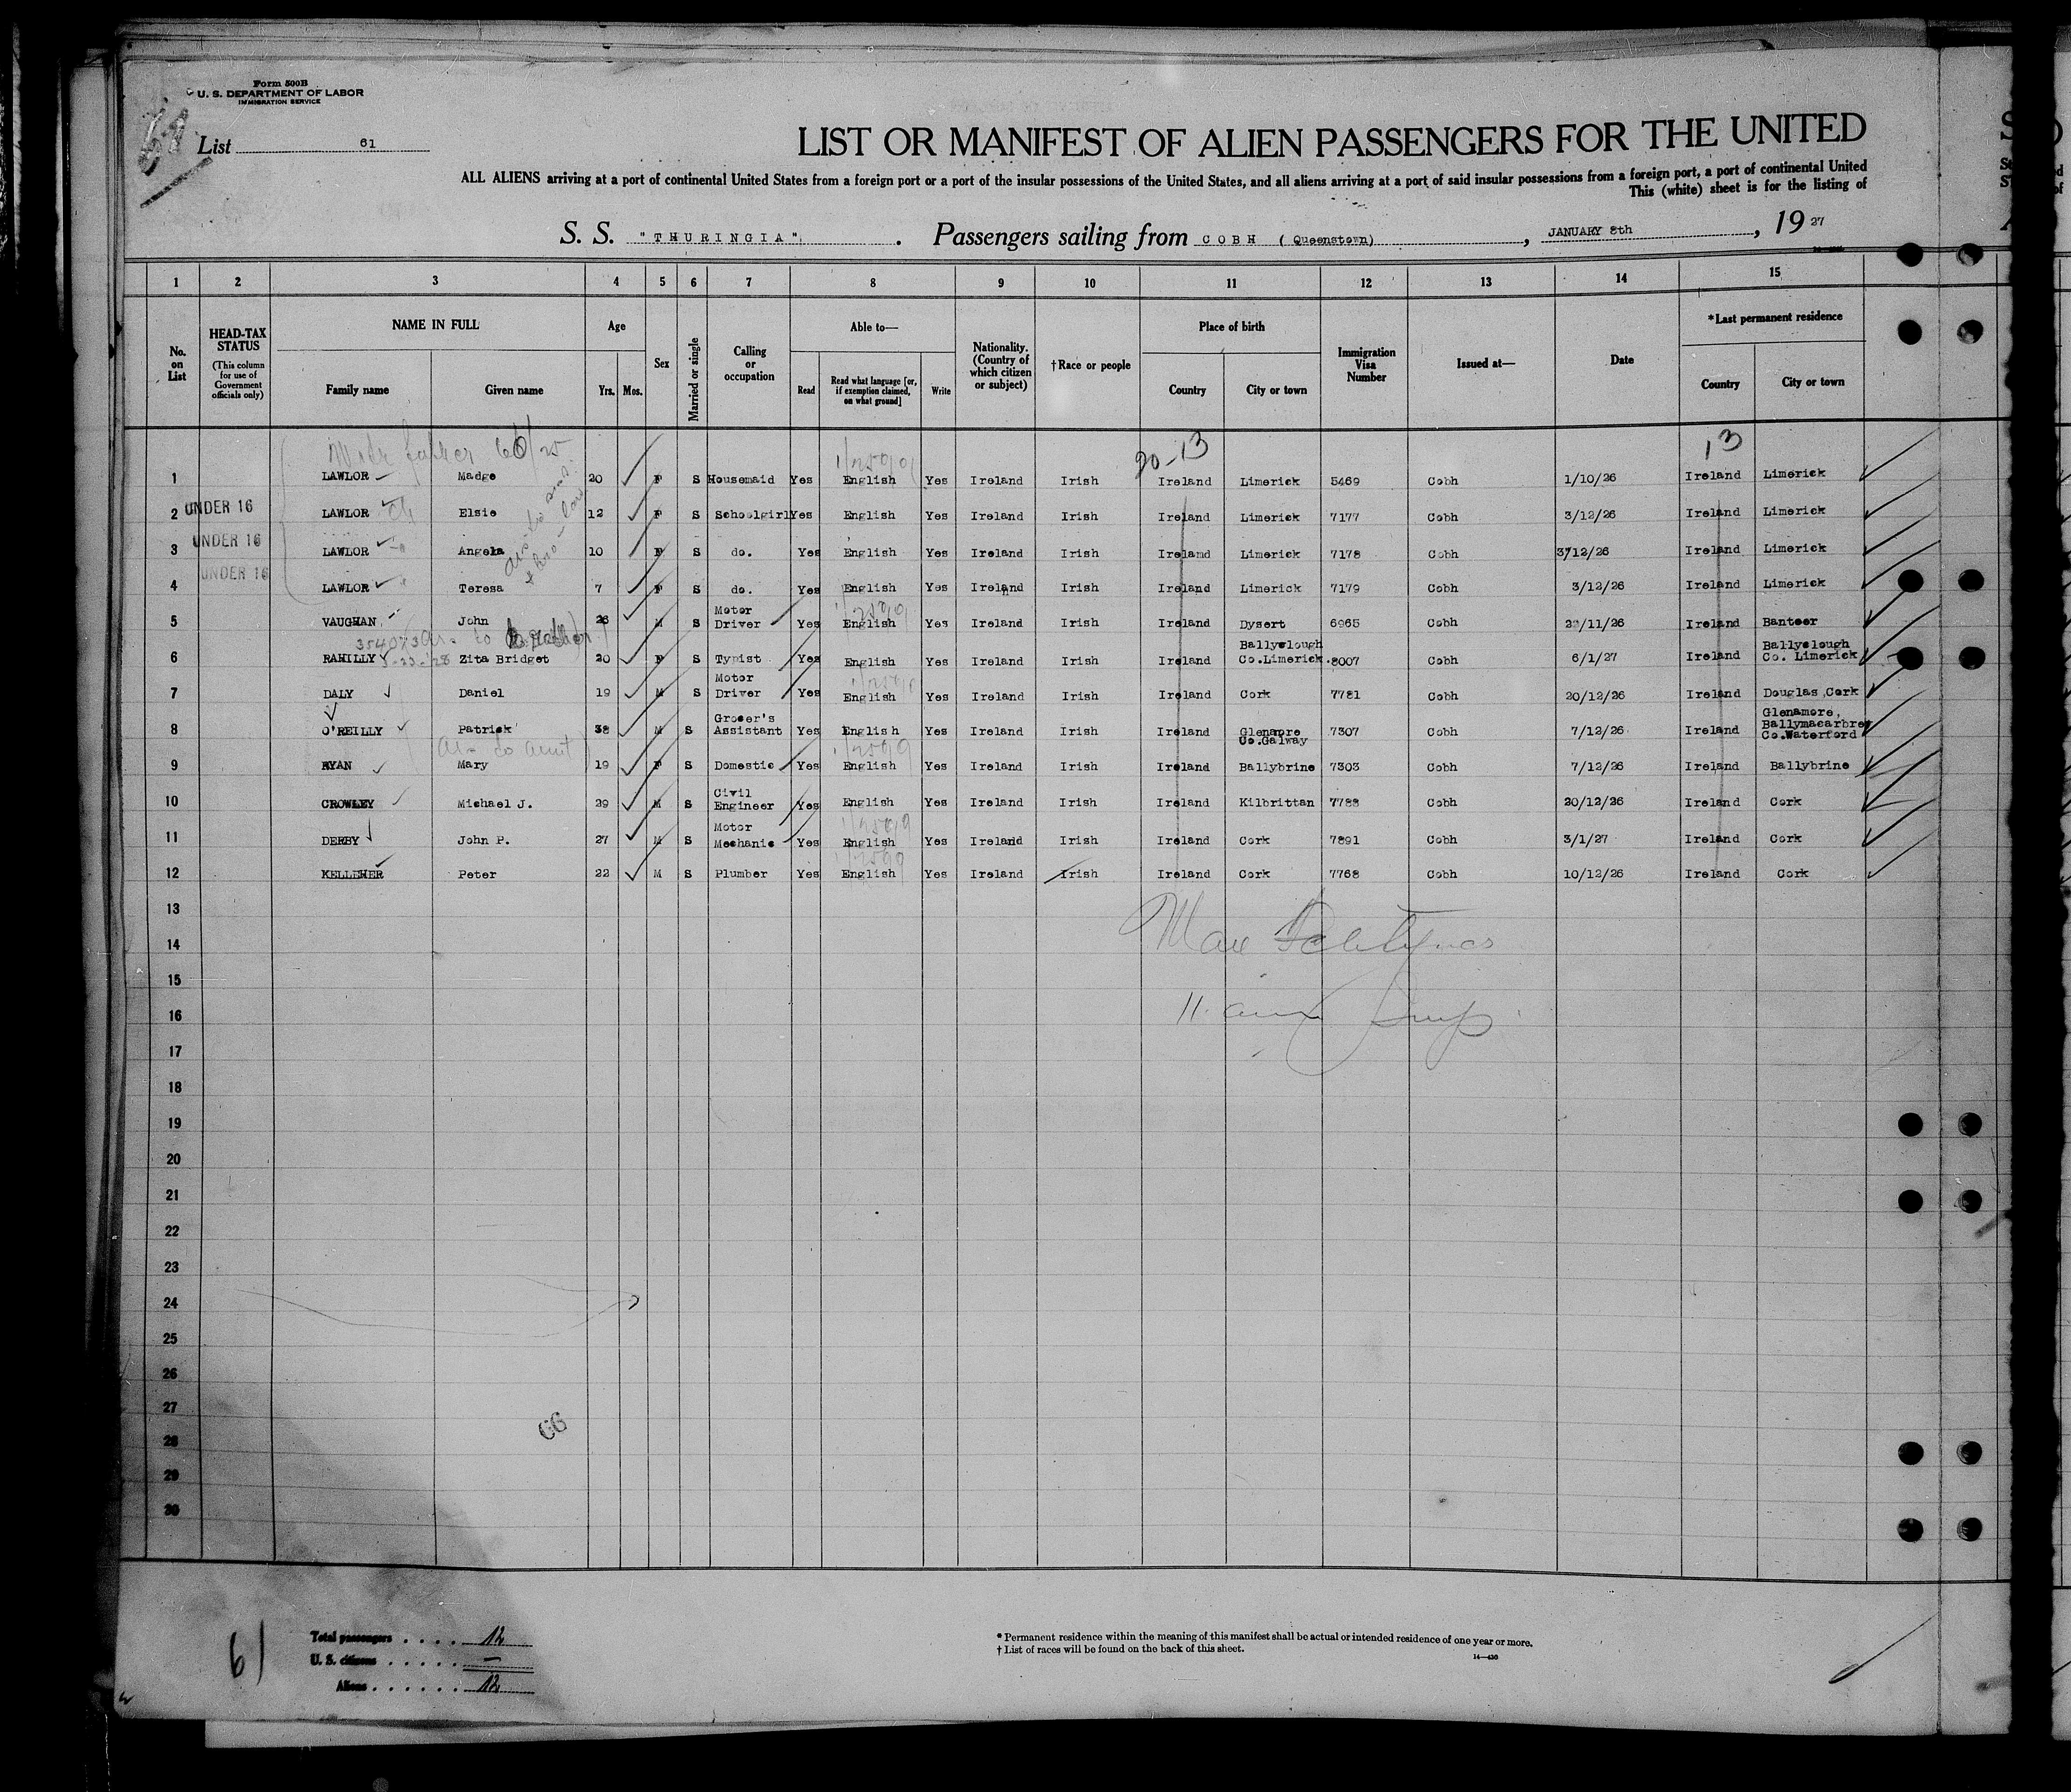 Form 500B
U. S. DEPARTMENT OF LABOR
IMMIGRATION SERVICE
List 61
LIST OR MANIFEST OF ALIEN PASSENGERS FOR THE UNITED
ALL ALIENS arriving at a port of continental United States from a foreign port or a port of the insular possessions of the United States, and all aliens arriving at a port of said insular possessions from a foreign port, a port of continental United
This (white) sheet is for the listing of
S. S. "THURINGIA". Passengers sailing from COBH (Queenstown), JANUARY 8th, 1927
1 2 3 4 5 6 7 8 9 10 11 12 13 14 15
No. on List
HEAD-TAX STATUS (This column for use of Government officials only)
NAME IN FULL
Family name Given name
Age
Yrs. Mos.
Sex
Married or single
Calling or occupation
Able to—
Read
Read what language [or, if exemption claimed, on what ground]
Write
Nationality. (Country of which citizen or subject)
†Race or people
Place of birth
Country City or town
Immigration Visa Number
Issued at—
Date
*Last permanent residence
Country City or town
20-13 13
1 LAWLOR Madge 20 F S Housemaid Yes English Yes Ireland Irish Ireland Limerick 5469 Cobh 1/10/26 Ireland Limerick
2 UNDER 16 LAWLOR Elsie 12 F S Schoolgirl Yes English Yes Ireland Irish Ireland Limerick 7177 Cobh 3/12/26 Ireland Limerick
3 UNDER 16 LAWLOR Angela 10 F S do. Yes English Yes Ireland Irish Ireland Limerick 7178 Cobh 3/12/26 Ireland Limerick
4 UNDER 16 LAWLOR Teresa 7 F S do. Yes English Yes Ireland Irish Ireland Limerick 7179 Cobh 3/12/26 Ireland Limerick
5 VAUGHAN John 26 M S Motor Driver Yes English Yes Ireland Irish Ireland Dysert 6965 Cobh /11/26 Ireland Banteer
6 RAHILLY Zita Bridget 20 F S Typist Yes English Yes Ireland Irish Ireland Ballyclough Co.Limerick. 8007 Cobh 6/1/27 Ireland Ballyclough Co. Limerick
7 DALY Daniel 19 M S Motor Driver Yes English Yes Ireland Irish Ireland Cork 7781 Cobh 20/12/26 Ireland Douglas,Cork
8 O'REILLY Patrick 38 M S Grocer's Assistant Yes English Yes Ireland Irish Ireland Glenmore Co.Galway 7307 Cobh 7/12/26 Ireland Glenamore, Ballymacarbrey Co.Waterford
9 RYAN Mary 19 F S Domestic Yes English Yes Ireland Irish Ireland Ballybrine 7303 Cobh 7/12/26 Ireland Ballybrine
10 CROWLEY Michael J. 29 M S Civil Engineer Yes English Yes Ireland Irish Ireland Kilbrittan 7788 Cobh 20/12/26 Ireland Cork
11 DERBY John P. 27 M S Motor Mechanic Yes English Yes Ireland Irish Ireland Cork 7891 Cobh 3/1/27 Ireland Cork
12 KELLEHER Peter 22 M S Plumber Yes English Yes Ireland Irish Ireland Cork 7768 Cobh 10/12/26 Ireland Cork
13
14
15
16
17
18
19
20
21
22
23
24
25
26
27
28
29
30
66
61
Total passengers . . . . 12
U. S. citizens . . . . . —
Aliens . . . . . . 12
* Permanent residence within the meaning of this manifest shall be actual or intended residence of one year or more.
† List of races will be found on the back of this sheet.
14—430